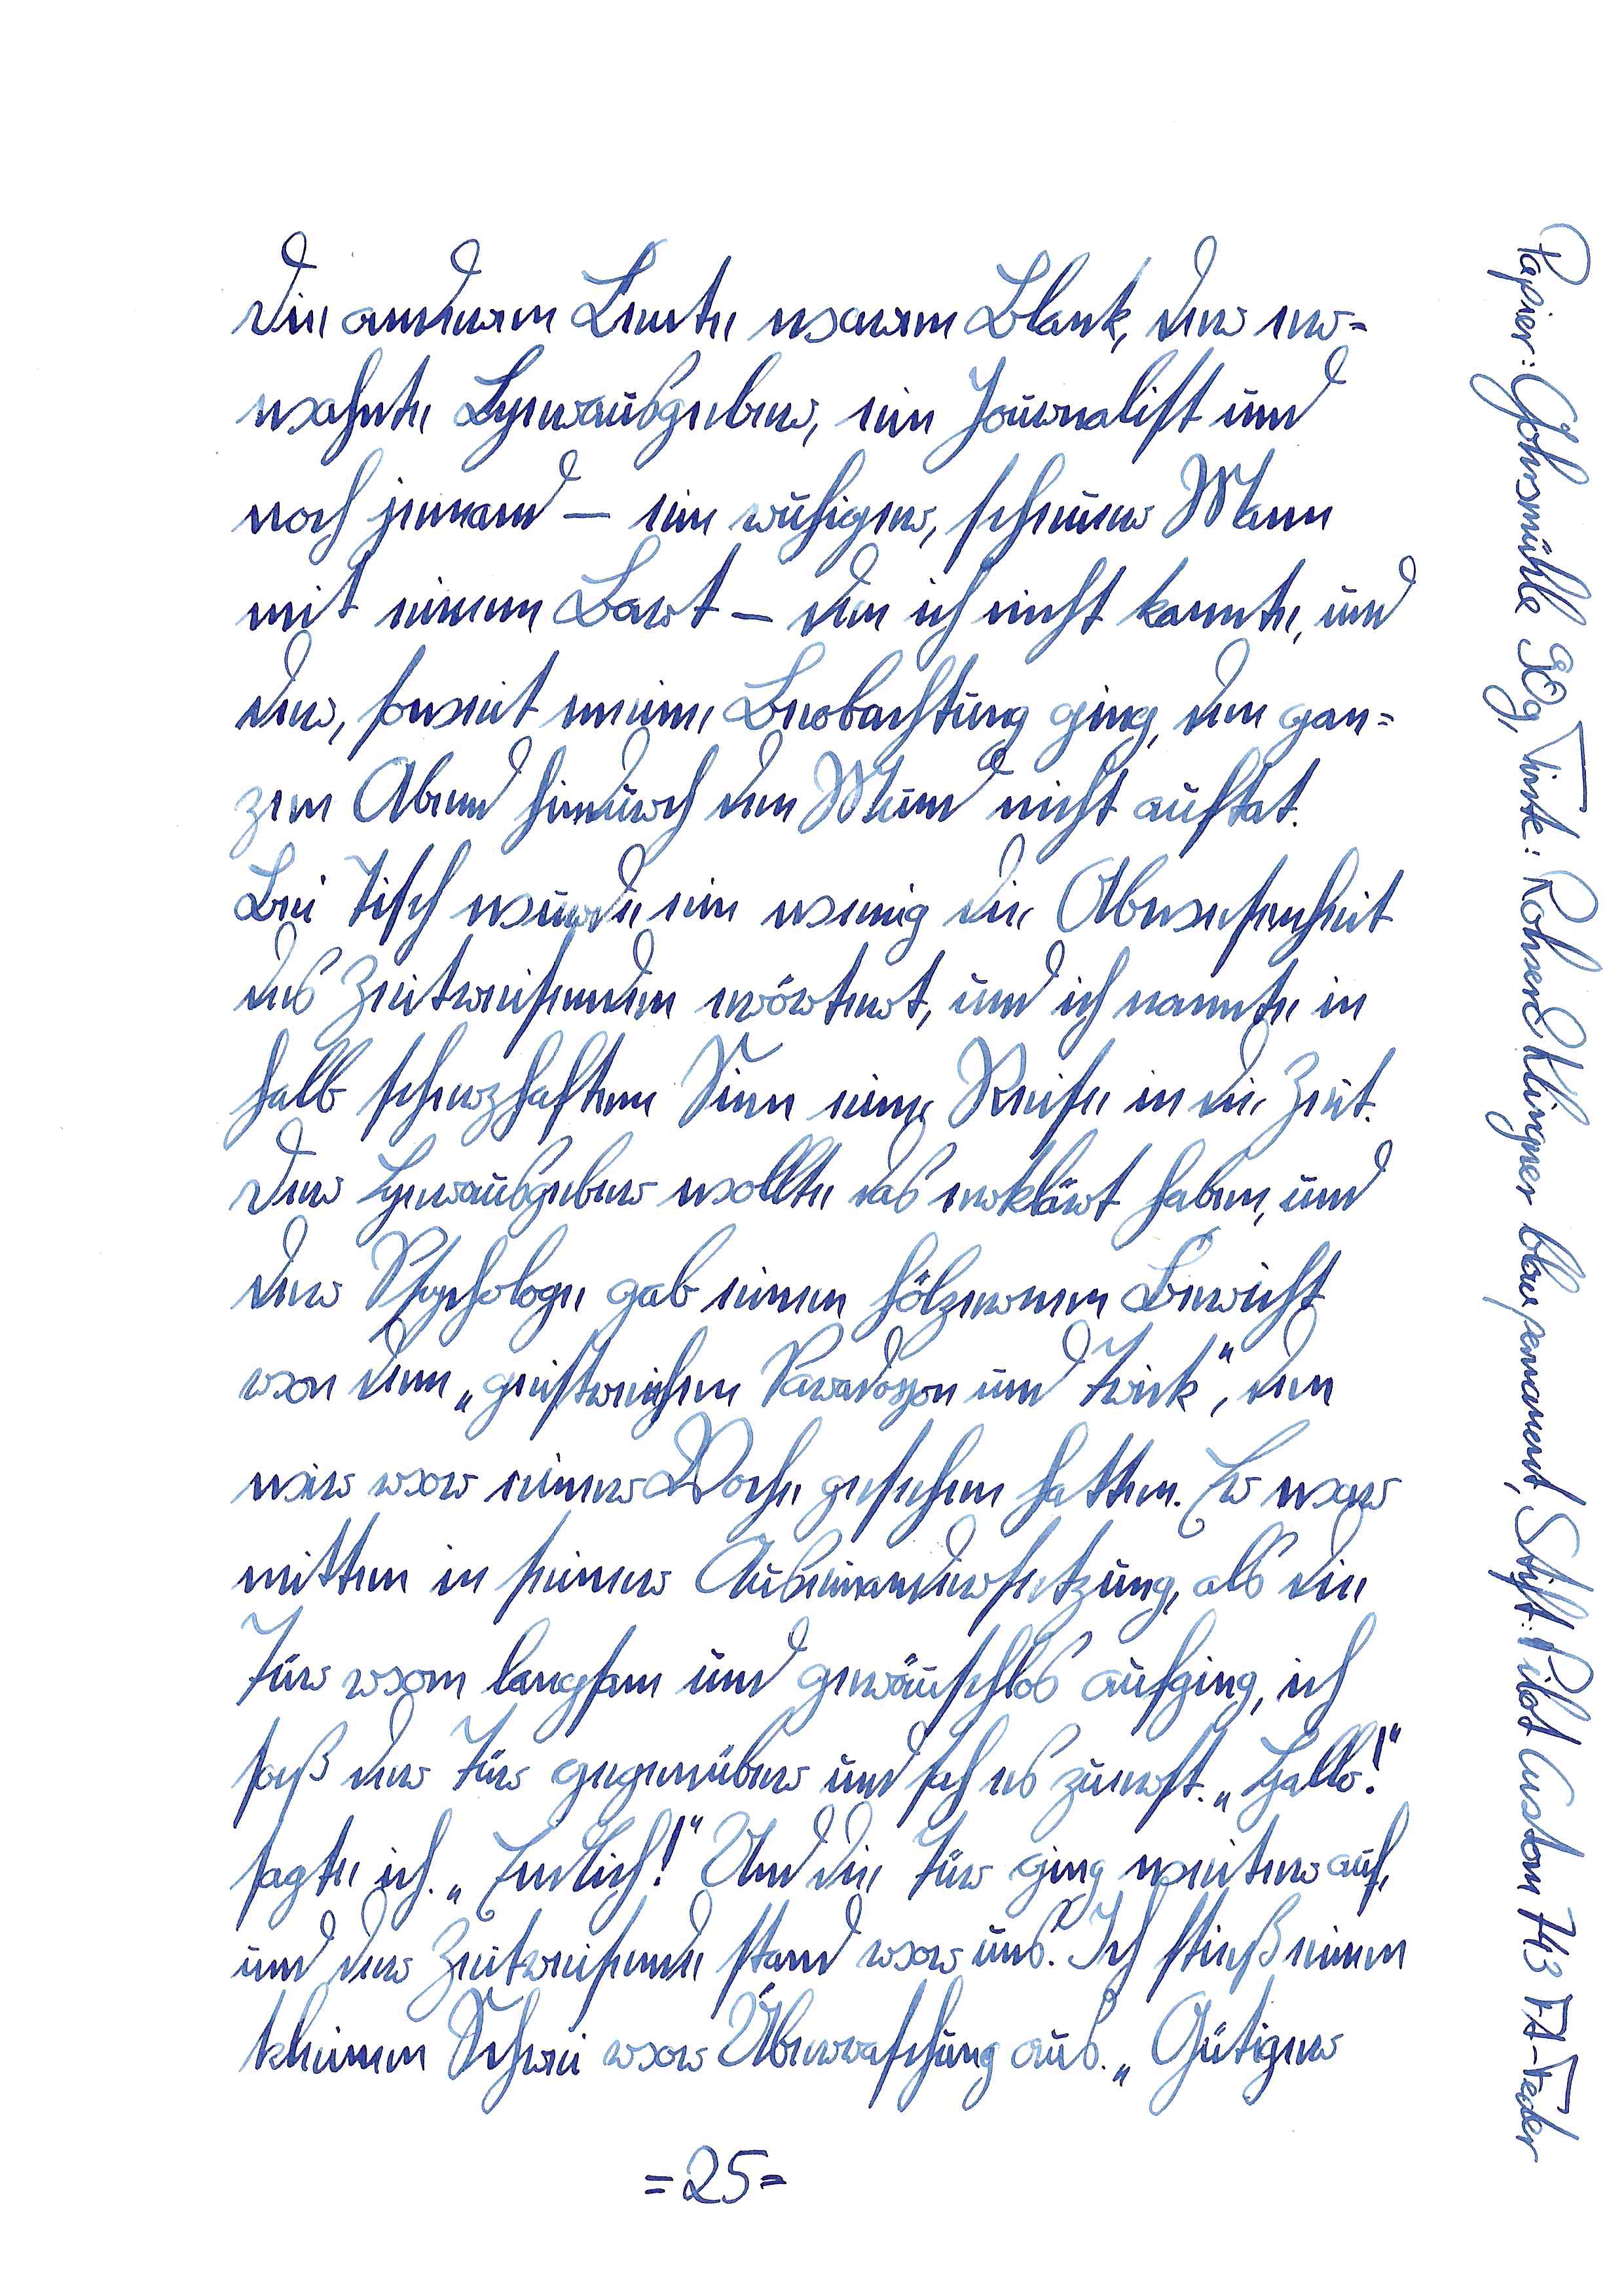 Die anderen Leute waren Blank, der er=
wähnte Herausgeber, ein Journalist und
noch jemand — ein ruhiger, scheuer Mann
mit einem Bart — den ich nicht kannte, und
der, soweit meine Beobachtung ging, den gan=
zen Abend hindurch den Mund nicht auftat.
Bei Tisch wurde ein wenig die Abwesenheit
des Zeitreisenden erörtert, und ich nannte in
halb scherzhaftem Sinn eine Reise in die Zeit.
Der Herausgeber wollte das erklärt haben, und
der Psychologe gab einen hölzernen Bericht
von dem „geistreichen Paradoxon und Trick“, den
wir vor einer Woche gesehen hatten. Er war
mitten in seiner Auseinandersetzung, als die
Tür vorn langsam und geräuschlos aufging, ich
saß der Tür gegenüber und sah es zuerst. „Hallo!“
sagte ich. „Endlich!“ Und die Tür ging weiter auf,
und der Zeitreisende stand vor uns. Ich stieß einen
kleinen Schrei vor Überraschung aus. „Gütiger
=25=
Papier: Gohrsmühle 90g, Tinte: Rohrer&Klingner blau permanent, Stift: Pilot Custom 743 FA-Feder